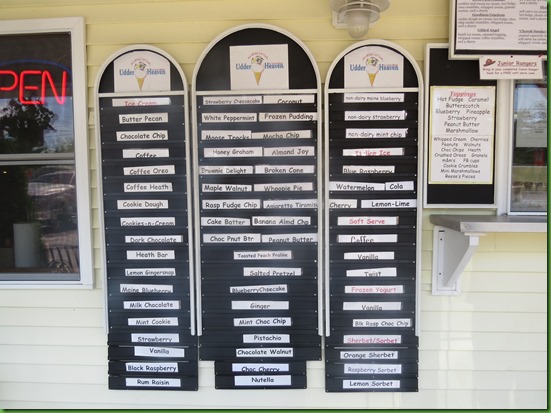 OPEN
Udder Heaven
Ice Cream
Butter Pecan
Chocolate Chip
Coffee
Coffee Oreo
Coffee Heath
Cookie Dough
Cookies-n-Cream
Dark Chocolate
Heath Bar
Lemon Gingersnap
Maine Blueberry
Milk Chocolate
Mint Cookie
Strawberry
Vanilla
Black Raspberry
Rum Raisin
Udder Heaven
Strawberry Cheesecake Coconut
White Peppermint Frozen Pudding
Moose Tracks Mocha Chip
Honey Graham Almond Joy
Brownie Delight Broken Cone
Maple Walnut Whoopie Pie
Rasp Fudge Chip Amaretto Tiramisu
Cake Batter Banana Almd Chp
Choc Pnut Btr Peanut Butter
Toasted Peach Praline
Salted Pretzel
BlueberryChsecake
Ginger
Mint Choc Chip
Pistachio
Chocolate Walnut
Choc Cherry
Nutella
Udder Heaven
non-dairy maine blueberry
non-dairy strawberry
non-dairy mint chip
Blue Raspberry
Watermelon Cola
Cherry Lemon-Lime
Soft Serve
Coffee
Vanilla
Twist
Frozen Yogurt
Vanilla
Blk Rasp Choc Chip
Sherbet/Sorbet
Orange Sherbet
Raspberry Sorbet
Lemon Sorbet
Junior Rangers
Toppings
Hot Fudge Caramel
Butterscotch
Blueberry Pineapple
Strawberry
Peanut Butter
Marshmallow
Whipped Cream Cherries
Peanuts Walnuts
Choc Chips Heath
Crushed Oreos Granola
m&m's PB cups
Cookie Crumbles
Mini Marshmallows
Reese's Pieces